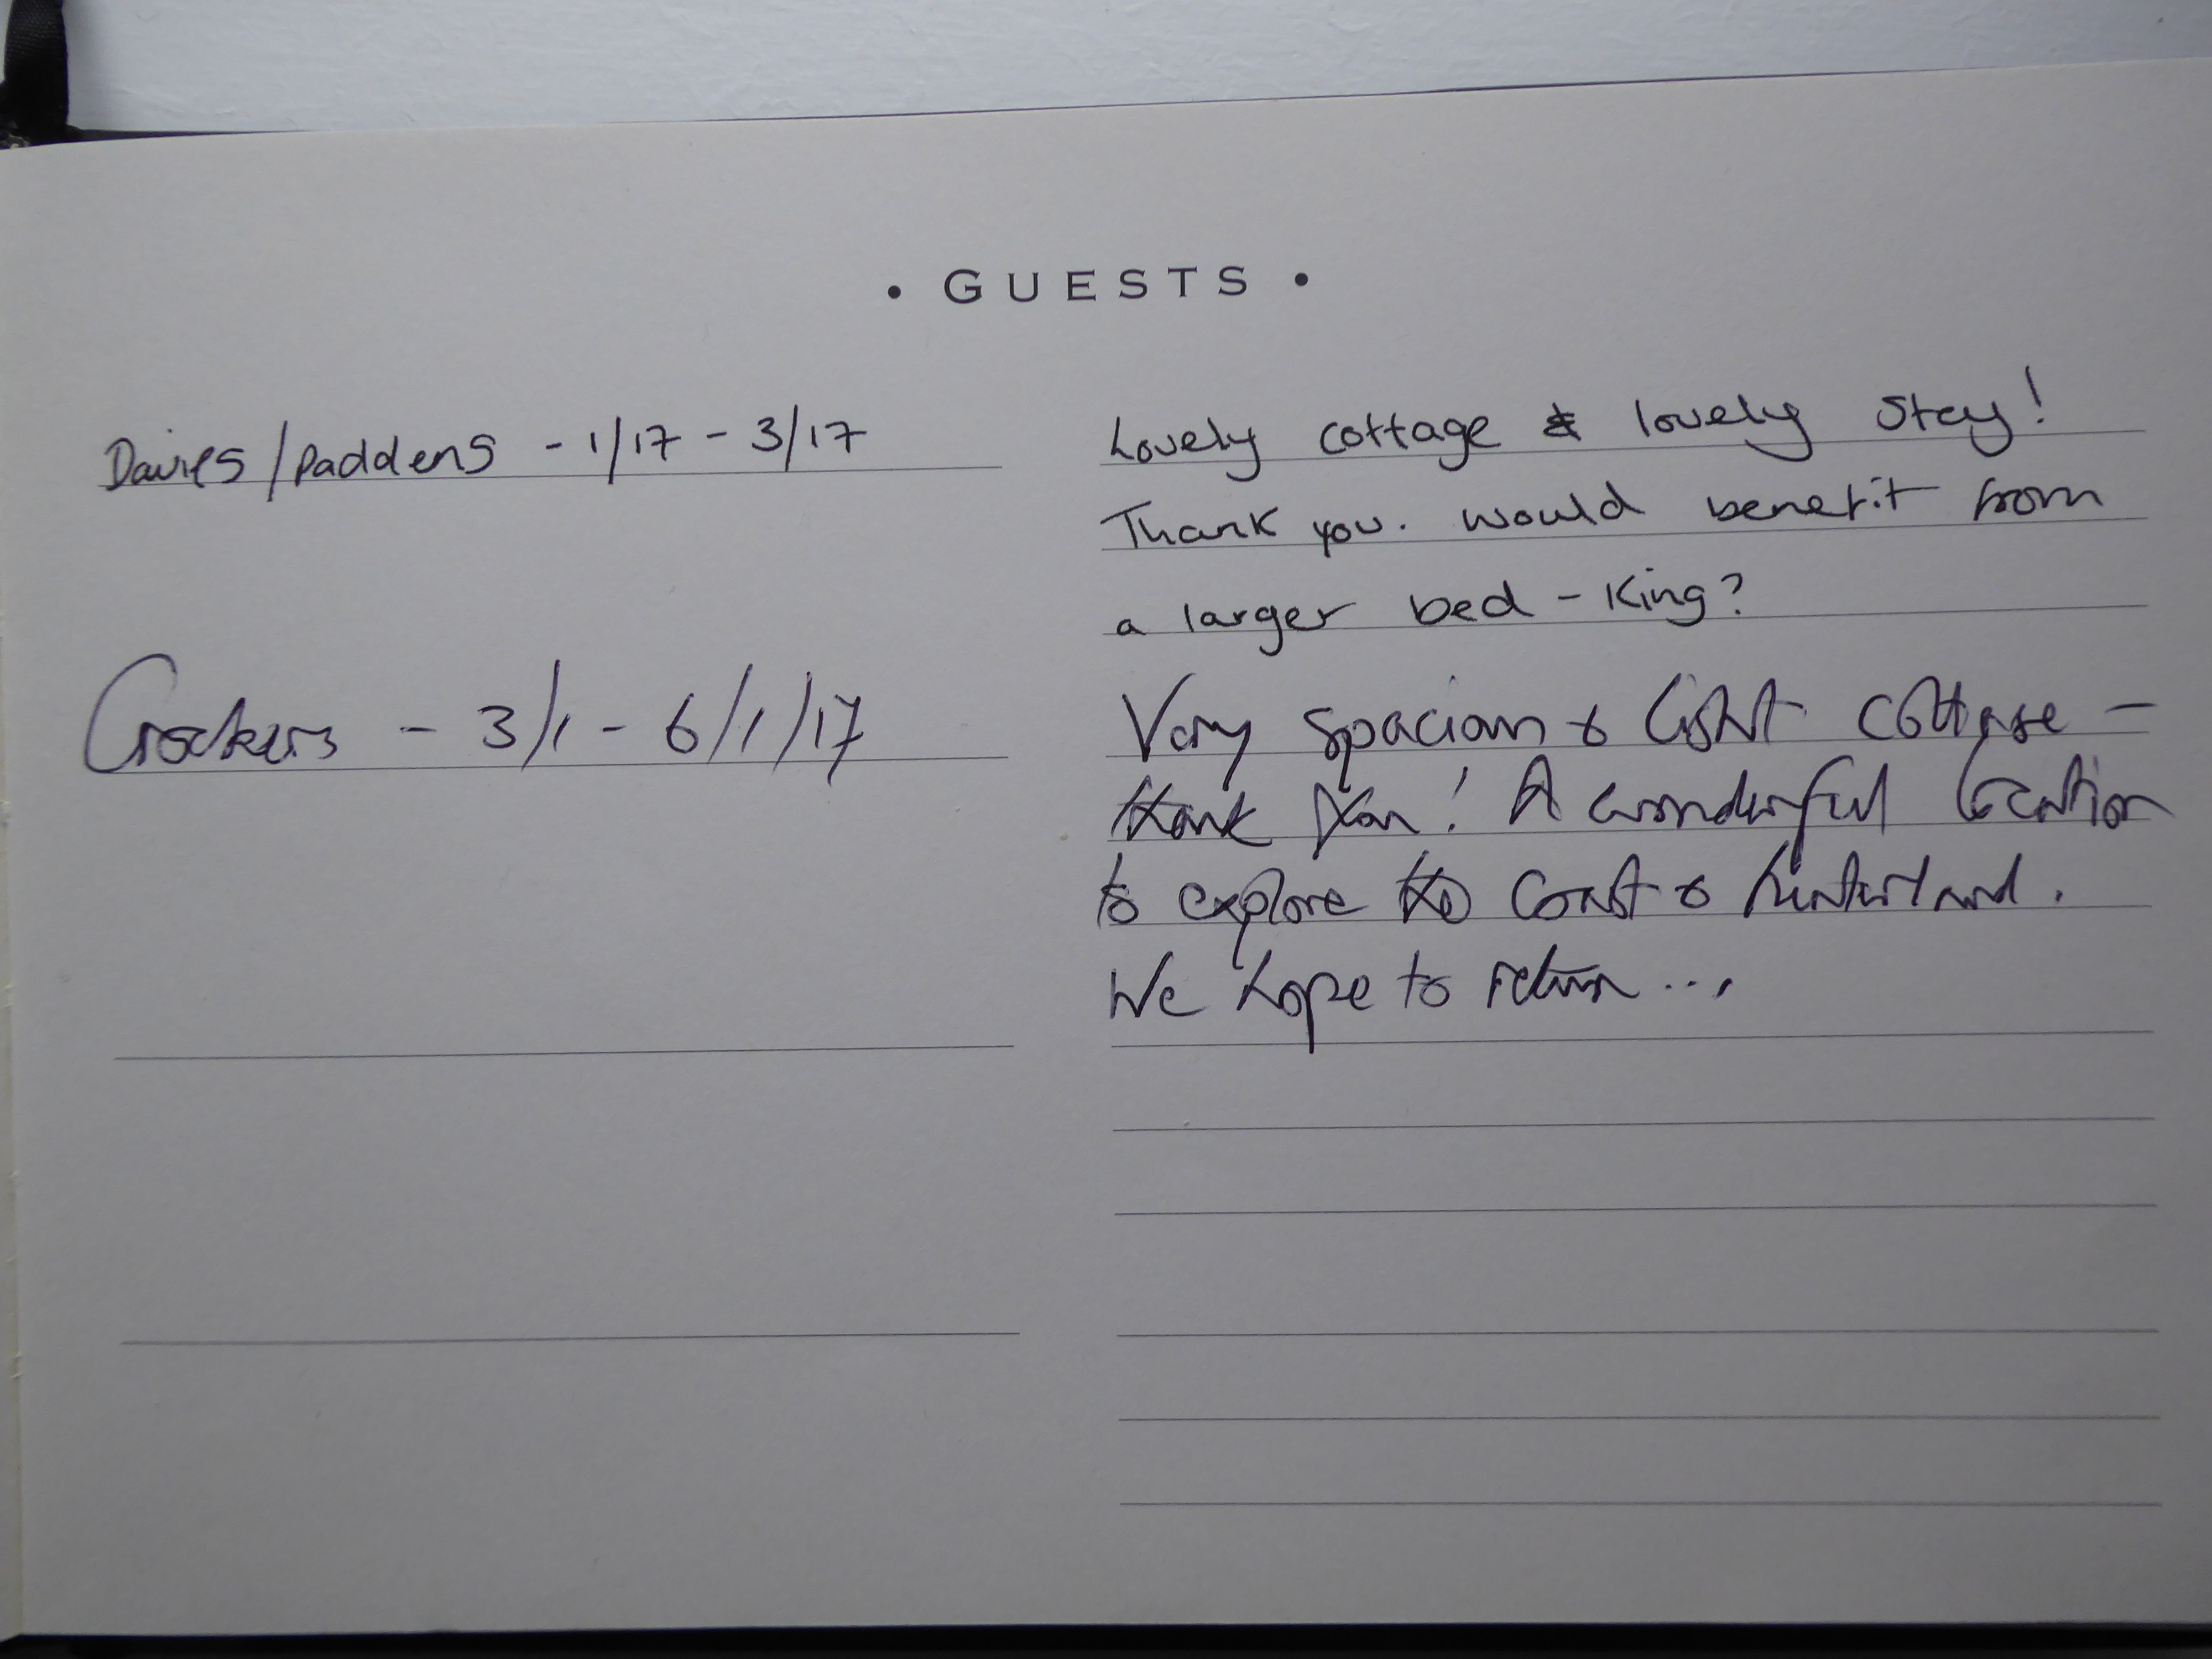 • GUESTS •
Davies/Paddens - 1/17 - 3/17
Lovely cottage & lovely stay!
Thank you. Would benefit from
a larger bed - King?
Crockers - 3/1 - 6/1/17
Very spacious & light cottage -
thank you! A wonderful location
to explore the coast & hinterland.
We hope to return...